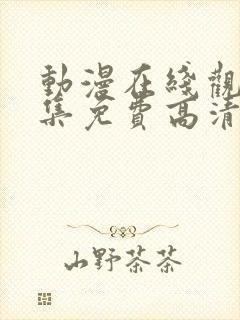 動漫在綫觀
集免費高清
山野茶茶